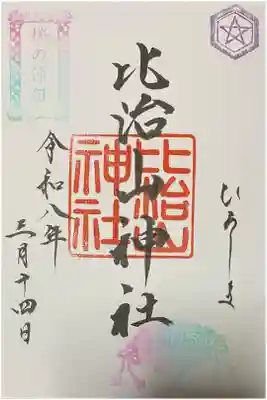 ひろしま
比治山神社
比治山
神社
令和八年
三月十四日